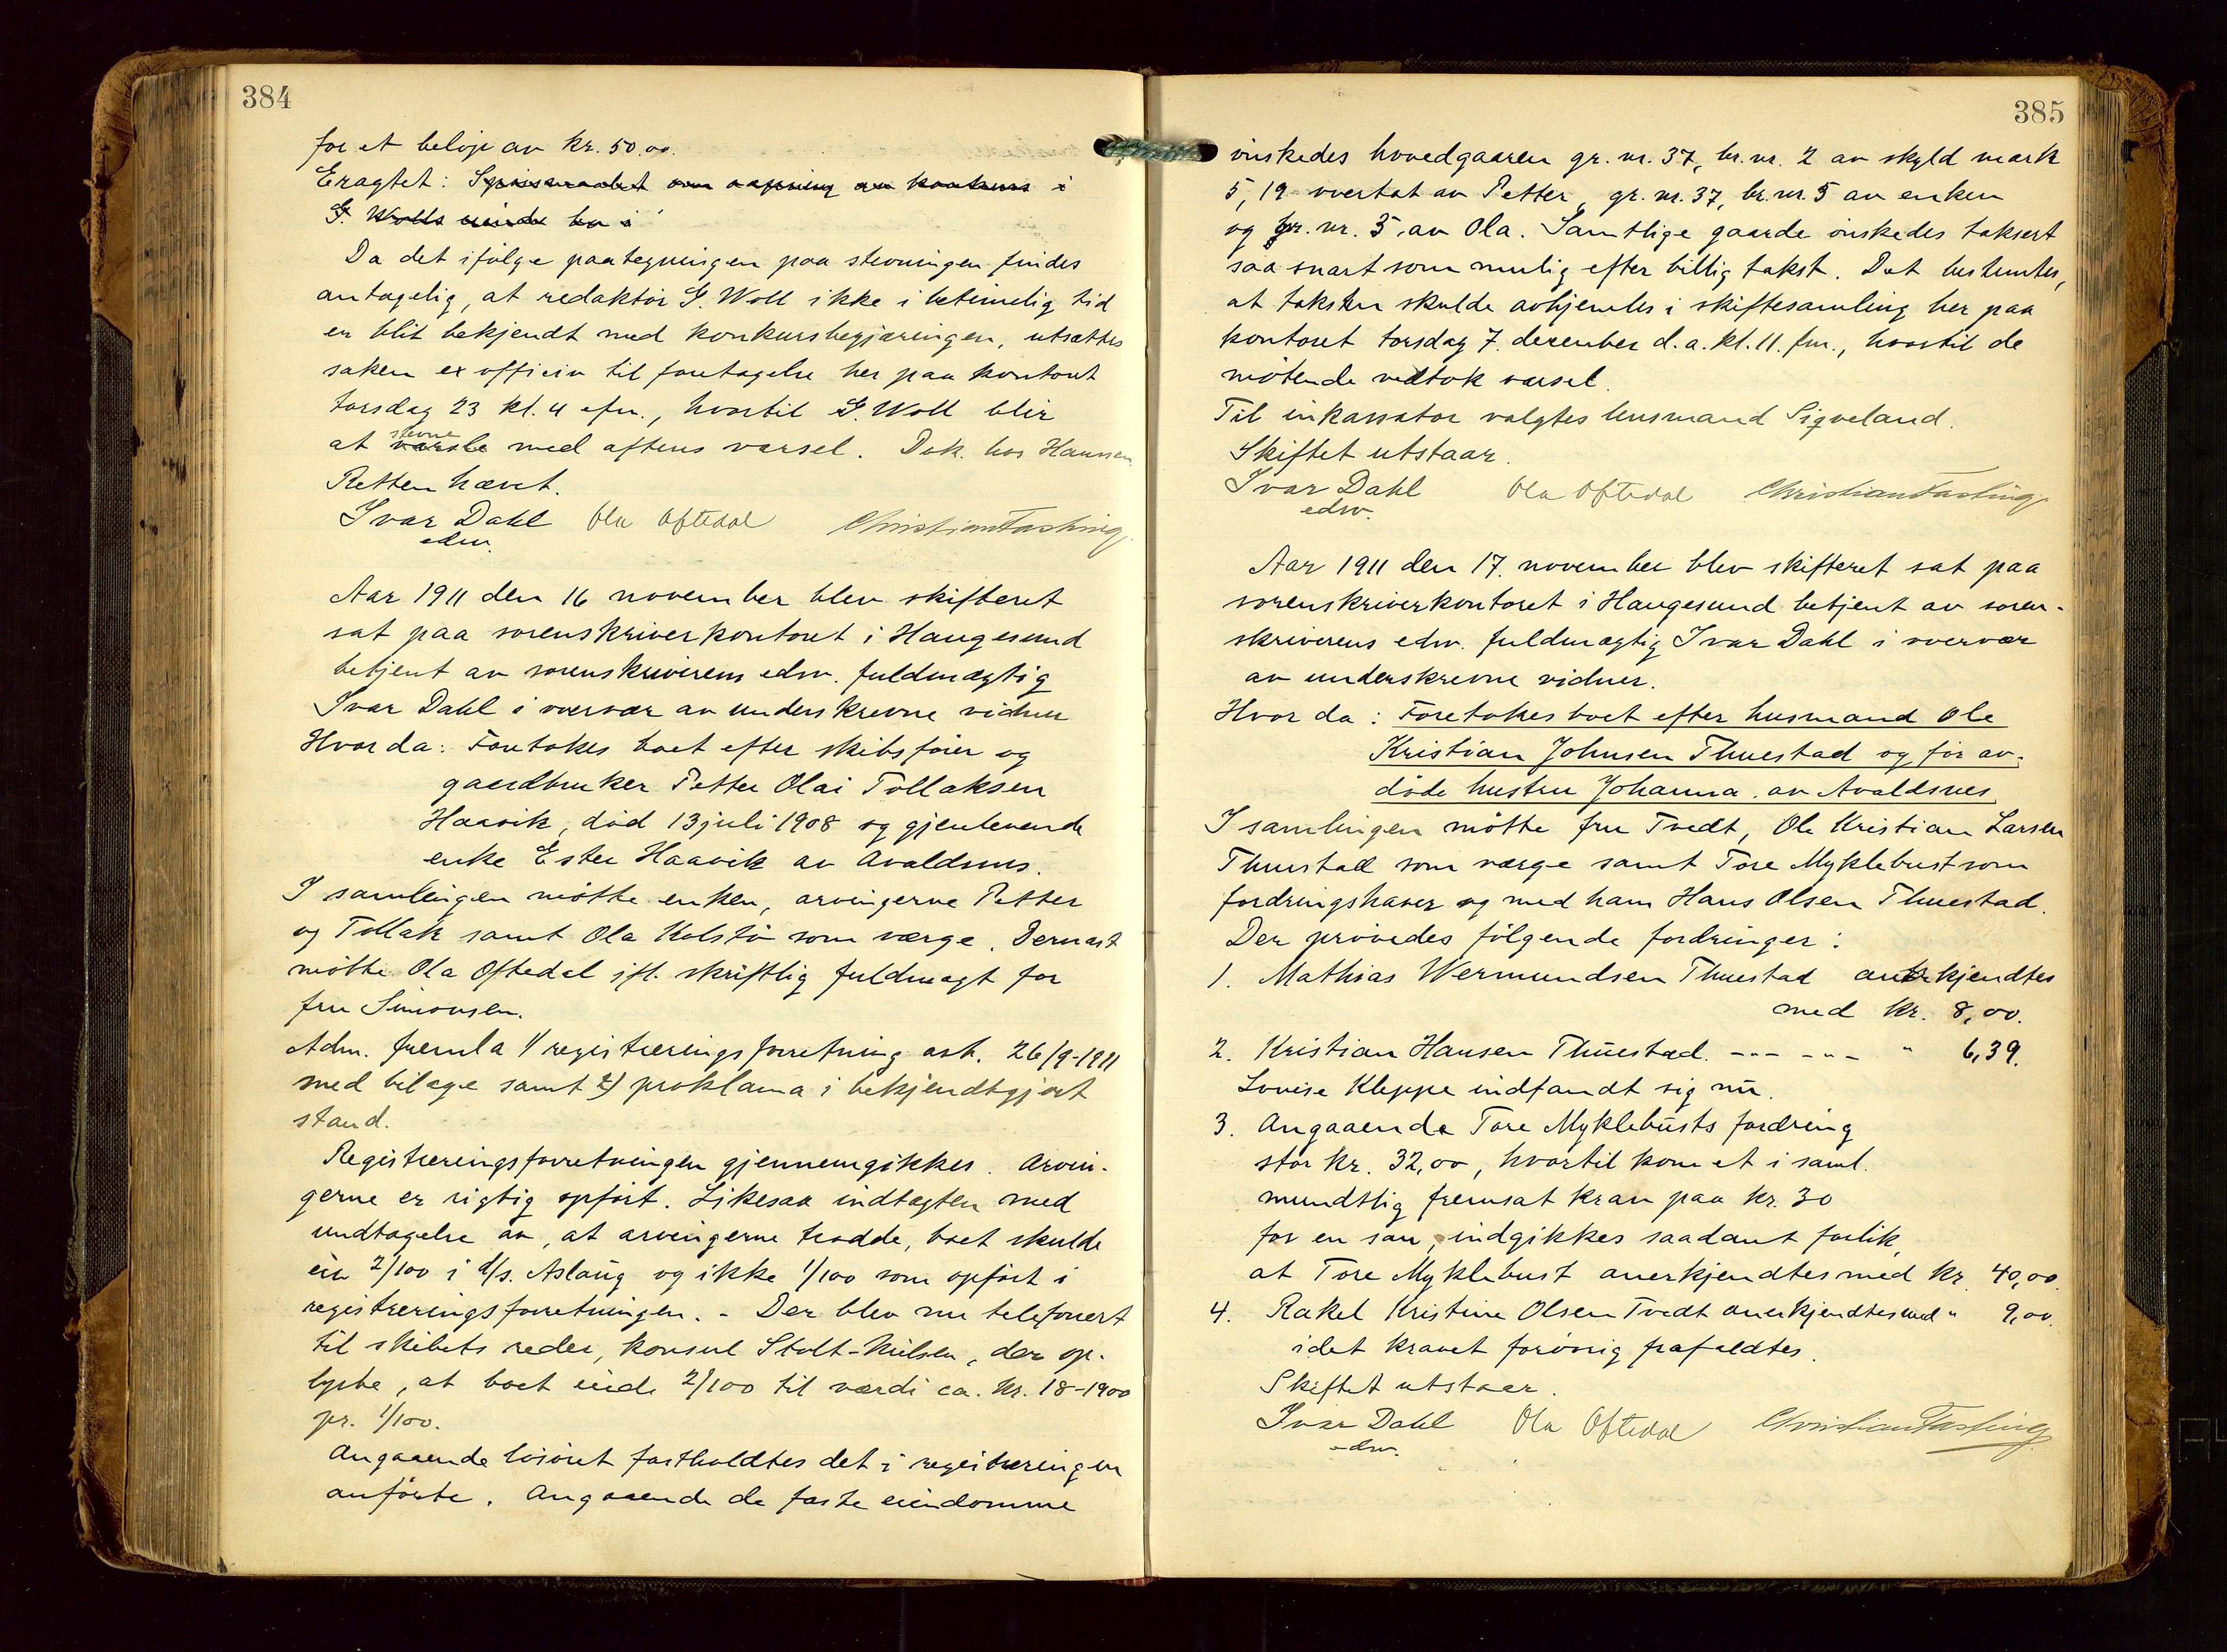 384
for et beløp av kr. 50.00.
Eragtet: Spørsmaalet om aapning av konkurs i
G. Wolls bo i
Da det ifølge paategningen paa stevningen findes
antagelig, at redaktør G. Woll ikke i betimelig tid
er blit bekjendt med konkursbegjæringen, utsættes
saken ex officio til foretagelse her paa kontoret
torsdag 23 kl. 4 efm., hvortil G. Woll blir
at varsle stevne med aftens varsel. Dok. hos Hansen
Retten hævet.
Ivar Dahl Ola Oftedal Christian Fasting
edsv.
Aar 1911 den 16 november blev skifteret
sat paa sorenskriverkontoret i Haugesund
betjent av sorenskriverens edsv. fuldmægtig
Ivar Dahl i overvær av underskrevne vidner
Hvor da: Foretokes boet efter skibsfører og
gaardbruker Petter Olai Tollaksen
Haavik, død 13 juli 1908 og gjenlevende
enke Ester Haavik av Avaldsnes.
I samlingen møtte enken, arvingerne Petter
og Tollak samt Ola Kolstø som værge. Dernæst
møtte Ola Oftedal ifl. skriftlig fuldmagt for
fru Simonsen.
Adm. fremla 1/ registreringsforretning avh. 26/9-1911
med bilage samt 2) proklama i bekjendtgjort
stand.
Registreringsforretningen gjennemgikkes. Arvin-
gerne er rigtig opført. Likesaa indtægten med
undtagelse av, at arvingerne trodde, boet skulde
eie 2/100 i d/s. Aslaug og ikke 1/100 som opført i
registreringsforretningen. - Der blev nu telefonert
til skibets reder, konsul Stolt-Nielsen, der op-
lyste, at boet eiede 2/100 til værdi ca. kr. 18-1900
pr. 1/100.
Angaaende løsøret fastholdtes det i registreringen
anførte. Angaaende de faste eiendomme
385
ønskedes hovedgaaren gr. nr. 37, br. nr. 2 av skyld mark
5,19 overtat av Petter, gr. nr. 37, br. nr. 5 av enken
og gr. nr. 35 av Ola. Samtlige gaarde ønskedes taksert
saa snart som mulig efter billig takst. Det bestemtes,
at taksten skulde avhjemles i skiftesamling her paa
kontoret torsdag 7. december d. a. kl. 11. fm., hvortil de
møtende vedtok varsel.
Til inkassator valgtes lensmand Sigveland.
Skiftet utstaar.
Ivar Dahl Ola Oftedal Christian Fasting
edsv.
Aar 1911 den 17. november blev skifteret sat paa
sorenskriverkontoret i Haugesund betjent av soren-
skriverens edsv. fuldmægtig Ivar Dahl i overvær
av underskrevne vidner.
Hvor da: Foretokes boet efter husmand Ole
Kristian Johnsen Thuestad og før av-
døde hustru Johanna av Avaldsnes
I samlingen møtte fru Tvedt, Ole Kristian Larsen
Thuestad som værge samt Tore Myklebust som
fordringshaver og med ham Hans Olsen Thuestad.
Der prøvedes følgende fordringer:
1. Mathias Wermundsen Thuestad anerkjendtes
med kr. 8,00.
2. Kristian Hansen Thuestad. --- --- " 6,39.
Lovise Kleppe indfandt sig nu.
3. Angaaende Tore Myklebusts fordring
stor kr. 32,00, hvortil kom et i saml.
mundtlig fremsat krav paa kr. 30
for en sau, indgikkes saadant forlik,
at Tore Myklebust anerkjendtes med kr. 40,00.
4. Rakel Kristine Olsen Tvedt anerkjendtes med " 9,00.
idet kravet forøvrig frafaldtes.
Skiftet utstaar.
Ivar Dahl Ola Oftedal Christian Fasting
edsv.